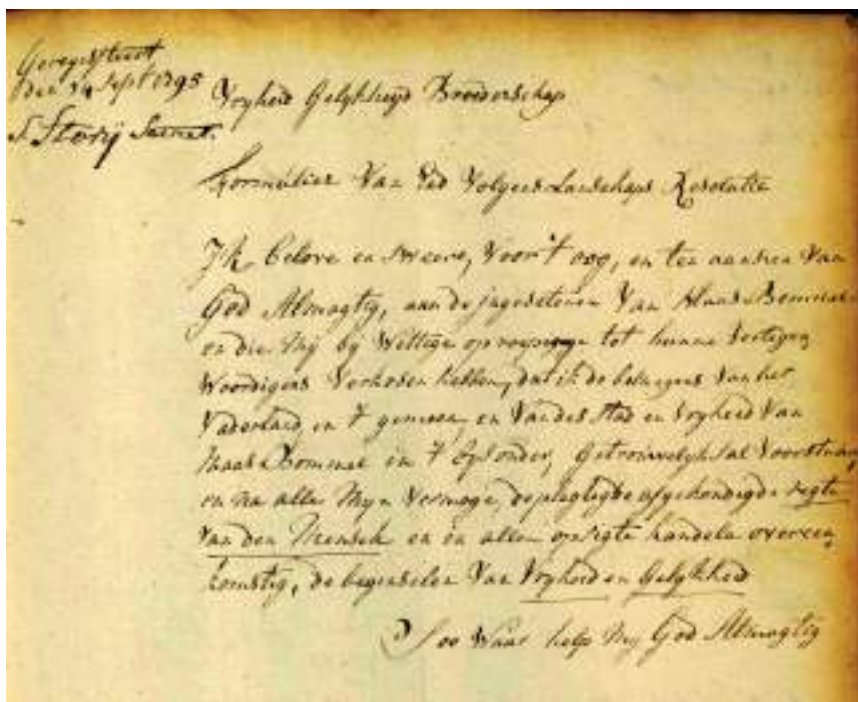 Geregistreert
den 14 Sept 1795
S Storij Secret.
Vryheid Gelykheyd Broederschap
Formulier Van Eed Volgens Landschaps Resolutie
Ik belove en sweere, Voor 't oog, en ten aanhren Van
God Almagtig, aan de ingesetenen Van Maas Bommel
en die Mij by Wettige oproepinge tot hunne Vertegen
Woordigers Verkosen hebben, dat ik de belangens Van het
Vaderland, in 't gemeen, en Van des Stad en Vryheid Van
Maas Bommel in 't bysonder, getrouwelyk sal Voorstaan,
en na alle Myn Vermoge, de plegtigde afgekondigde regte
Van den Mensch en in allen opsigte handelen overeen
komstig, de beginselen Van Vryheid en Gelykheid
Soo Waar help My God Almagtig